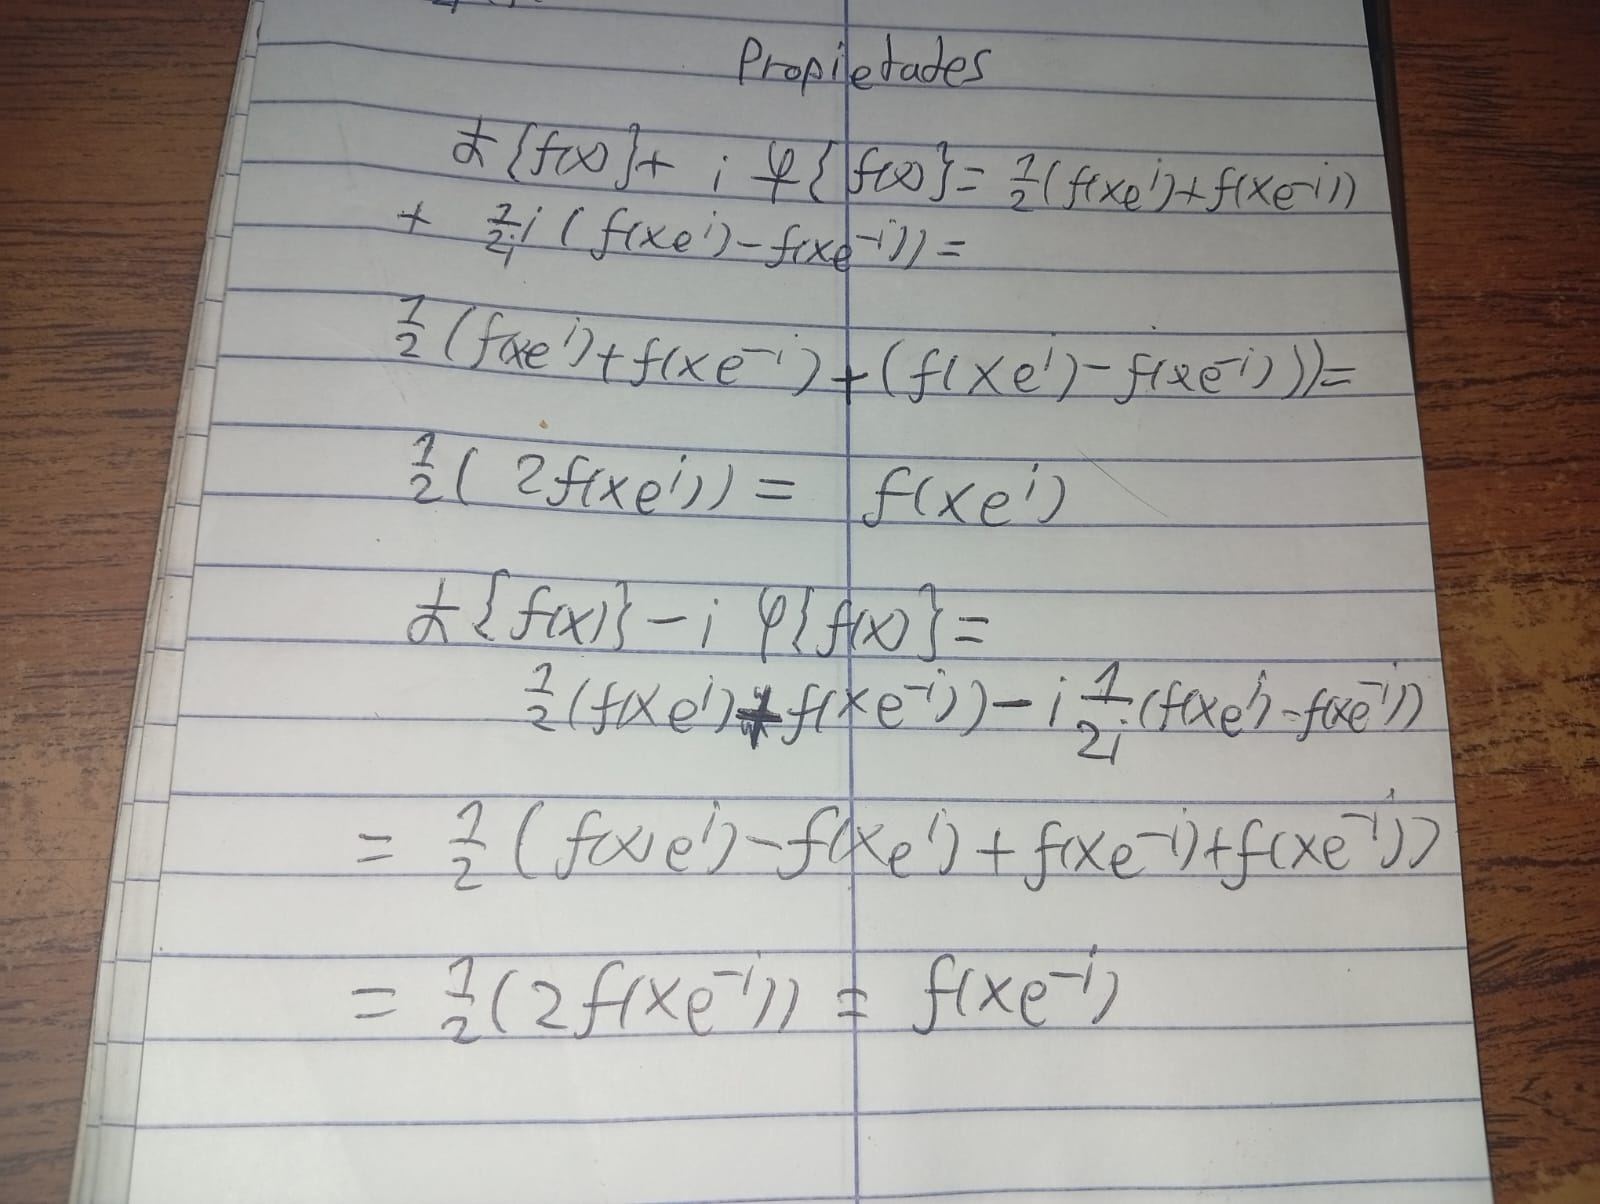 Propiedades
ﾑ{f(x)}+ i φ{f(x)}= 1/2(f(xe^i)+f(xe^-i))
+ 1/2i i(f(xe^i)-f(xe^-i))=
1/2(f(xe^i)+f(xe^-i)+(f(xe^i)-f(xe^-i)))=
1/2(2f(xe^i))= f(xe^i)
{f(x)}-i φ{f(x)}=
1/2(f(xe^i)+f(xe^-i))-i 1/2i(f(xe^i)-f(xe^-i))
= 1/2(f(xe^i)-f(xe^i)+f(xe^-i)+f(xe^-i))
= 1/2(2f(xe^-i))= f(xe^-i)